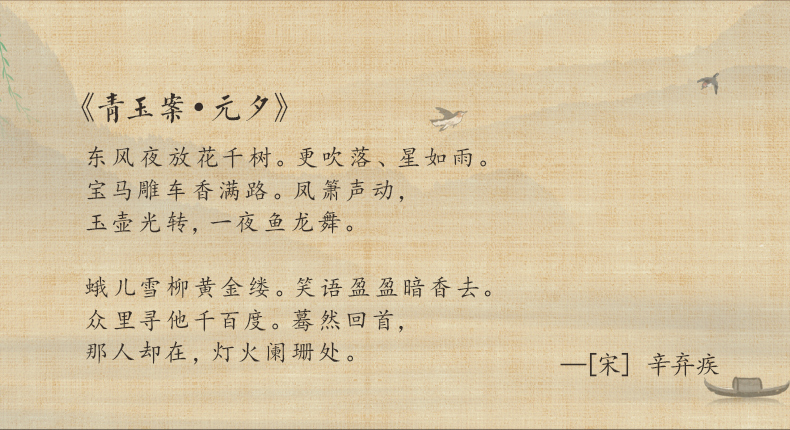 《青玉案•元夕》
东风夜放花千树。更吹落、星如雨。
宝马雕车香满路。凤箫声动，
玉壶光转，一夜鱼龙舞。
蛾儿雪柳黄金缕。笑语盈盈暗香去。
众里寻他千百度。蓦然回首，
那人却在，灯火阑珊处。
—[宋] 辛弃疾